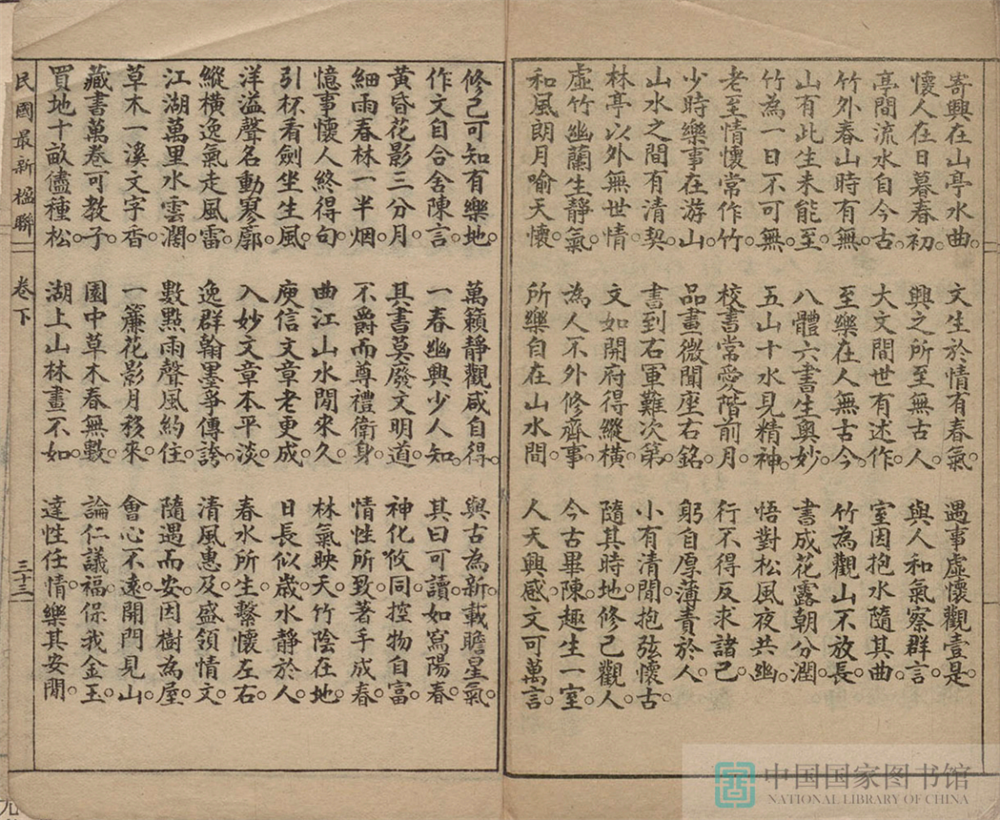 寄興在山亭水曲。
懷人在日暮春初。
亭間流水自今古。
竹外春山時有無。
山有此生未能至。
竹為一日不可無。
老至情懷常作竹。
少時樂事在游山。
山水之間有清契。
林亭以外無世情。
虛竹幽蘭生靜氣。
和風朗月喻天懷。
文生於情有春氣。
興之所至無古人。
大文間世有述作。
至樂在人無古今。
八體六書生奧妙。
五山十水見精神。
校書常愛階前月。
品畫微聞座右銘。
書到右軍難次第。
文如開府得縱橫。
為人不外修齊事。
所樂自在山水間。
遇事虛懷觀壹是。
與人和氣察群言。
室因抱水隨其曲。
竹為觀山不放長。
書成花露朝分潤。
悟對松風夜共幽。
行不得反求諸己。
躬自厚薄責於人。
小有清閒。抱弦懷古。
隨其時地。修己觀人。
今古畢陳。趣生一室。
人天興感。文可萬言。
修己可知有樂地。
作文自合舍陳言。
黃昏花影三分月。
細雨春林一半烟。
憶事懷人終得句。
引杯看劍坐生風。
洋溢聲名動寥廓。
縱橫逸氣走風雷。
江湖萬里水雲濶。
草木一溪文字香。
藏書萬卷可教子。
買地十畝儘種松。
萬籟靜觀咸自得。
一春幽興少人知。
其書莫廢文明道。
不爵而尊禮衛身。
曲江山水聞來久。
庾信文章老更成。
入妙文章本平淡。
逸群翰墨爭傳誇。
數點雨聲風約住。
一簾花影月移來。
園中草木春無數。
湖上山林畫不如。
與古為新。載瞻星氣。
其曰可讀。如寫陽春。
神化攸同。控物自富。
情性所致。著手成春。
林氣映天。竹陰在地。
日長似歲。水靜於人。
春水所生。繫懷左右。
清風惠及。盛領情文。
隨遇而安。因樹為屋。
會心不遠。開門見山。
論仁議福。保我金玉。
達性任情。樂其安閒。
民國最新楹聯
卷下
三十三
中国国家图书馆
NATIONAL LIBRARY OF CHINA